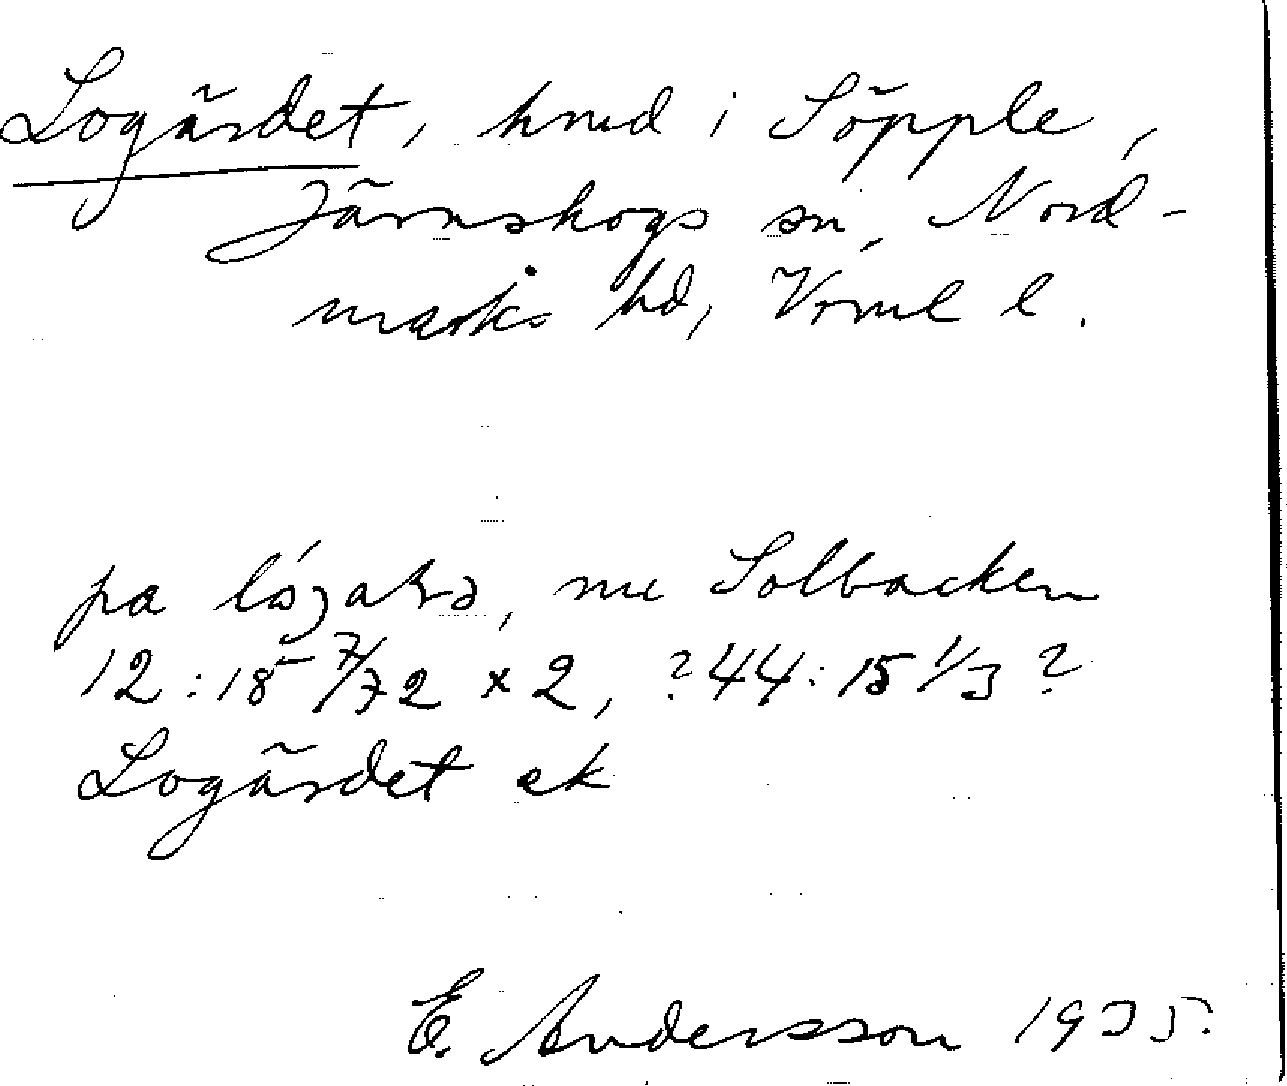 Logärdet, hmd i Söpple,
Järnskogs sn, Nord-
marks hd, Vrml l.
pa
nu Solbacken
12:18 7/72 x 2, ?44:15 1/3 ?
Logärdet ek
E. Andersson 1935.